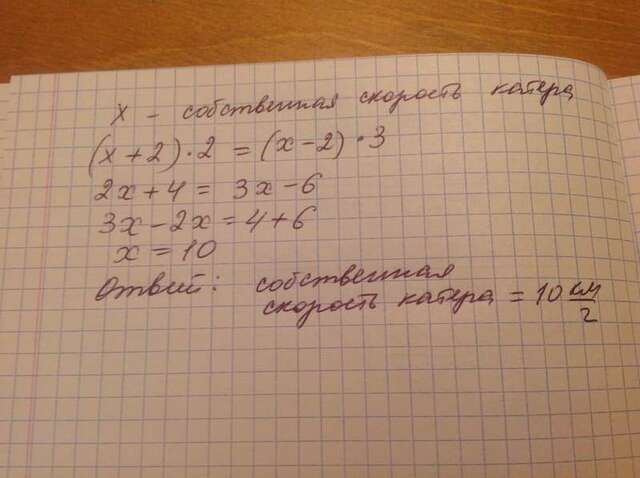 x - собственная скорость катера
(x+2)·2 = (x-2)·3
2x+4 = 3x-6
3x-2x=4+6
x=10
Ответ: собственная
скорость катера = 10 км/ч